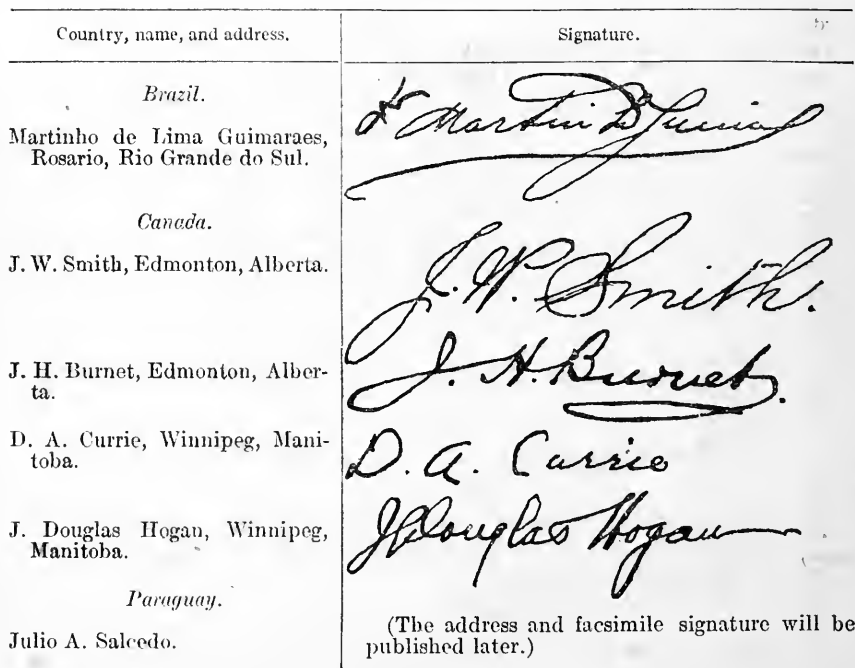 Country, name, and address.
Signature.
Brazil.
Martinho de Lima Guimaraes,
Rosario, Rio Grande do Sul.
Dr Martin
Canada.
J. W. Smith, Edmonton, Alberta.
J. W. Smith.
J. H. Burnet, Edmonton, Alber-
ta.
J. H. Burnet.
D. A. Currie, Winnipeg, Mani-
toba.
D. A. Currie
J. Douglas Hogan, Winnipeg,
Manitoba.
J Douglas Hogan
Paraguay.
Julio A. Salcedo.
(The address and facsimile signature will be
published later.)